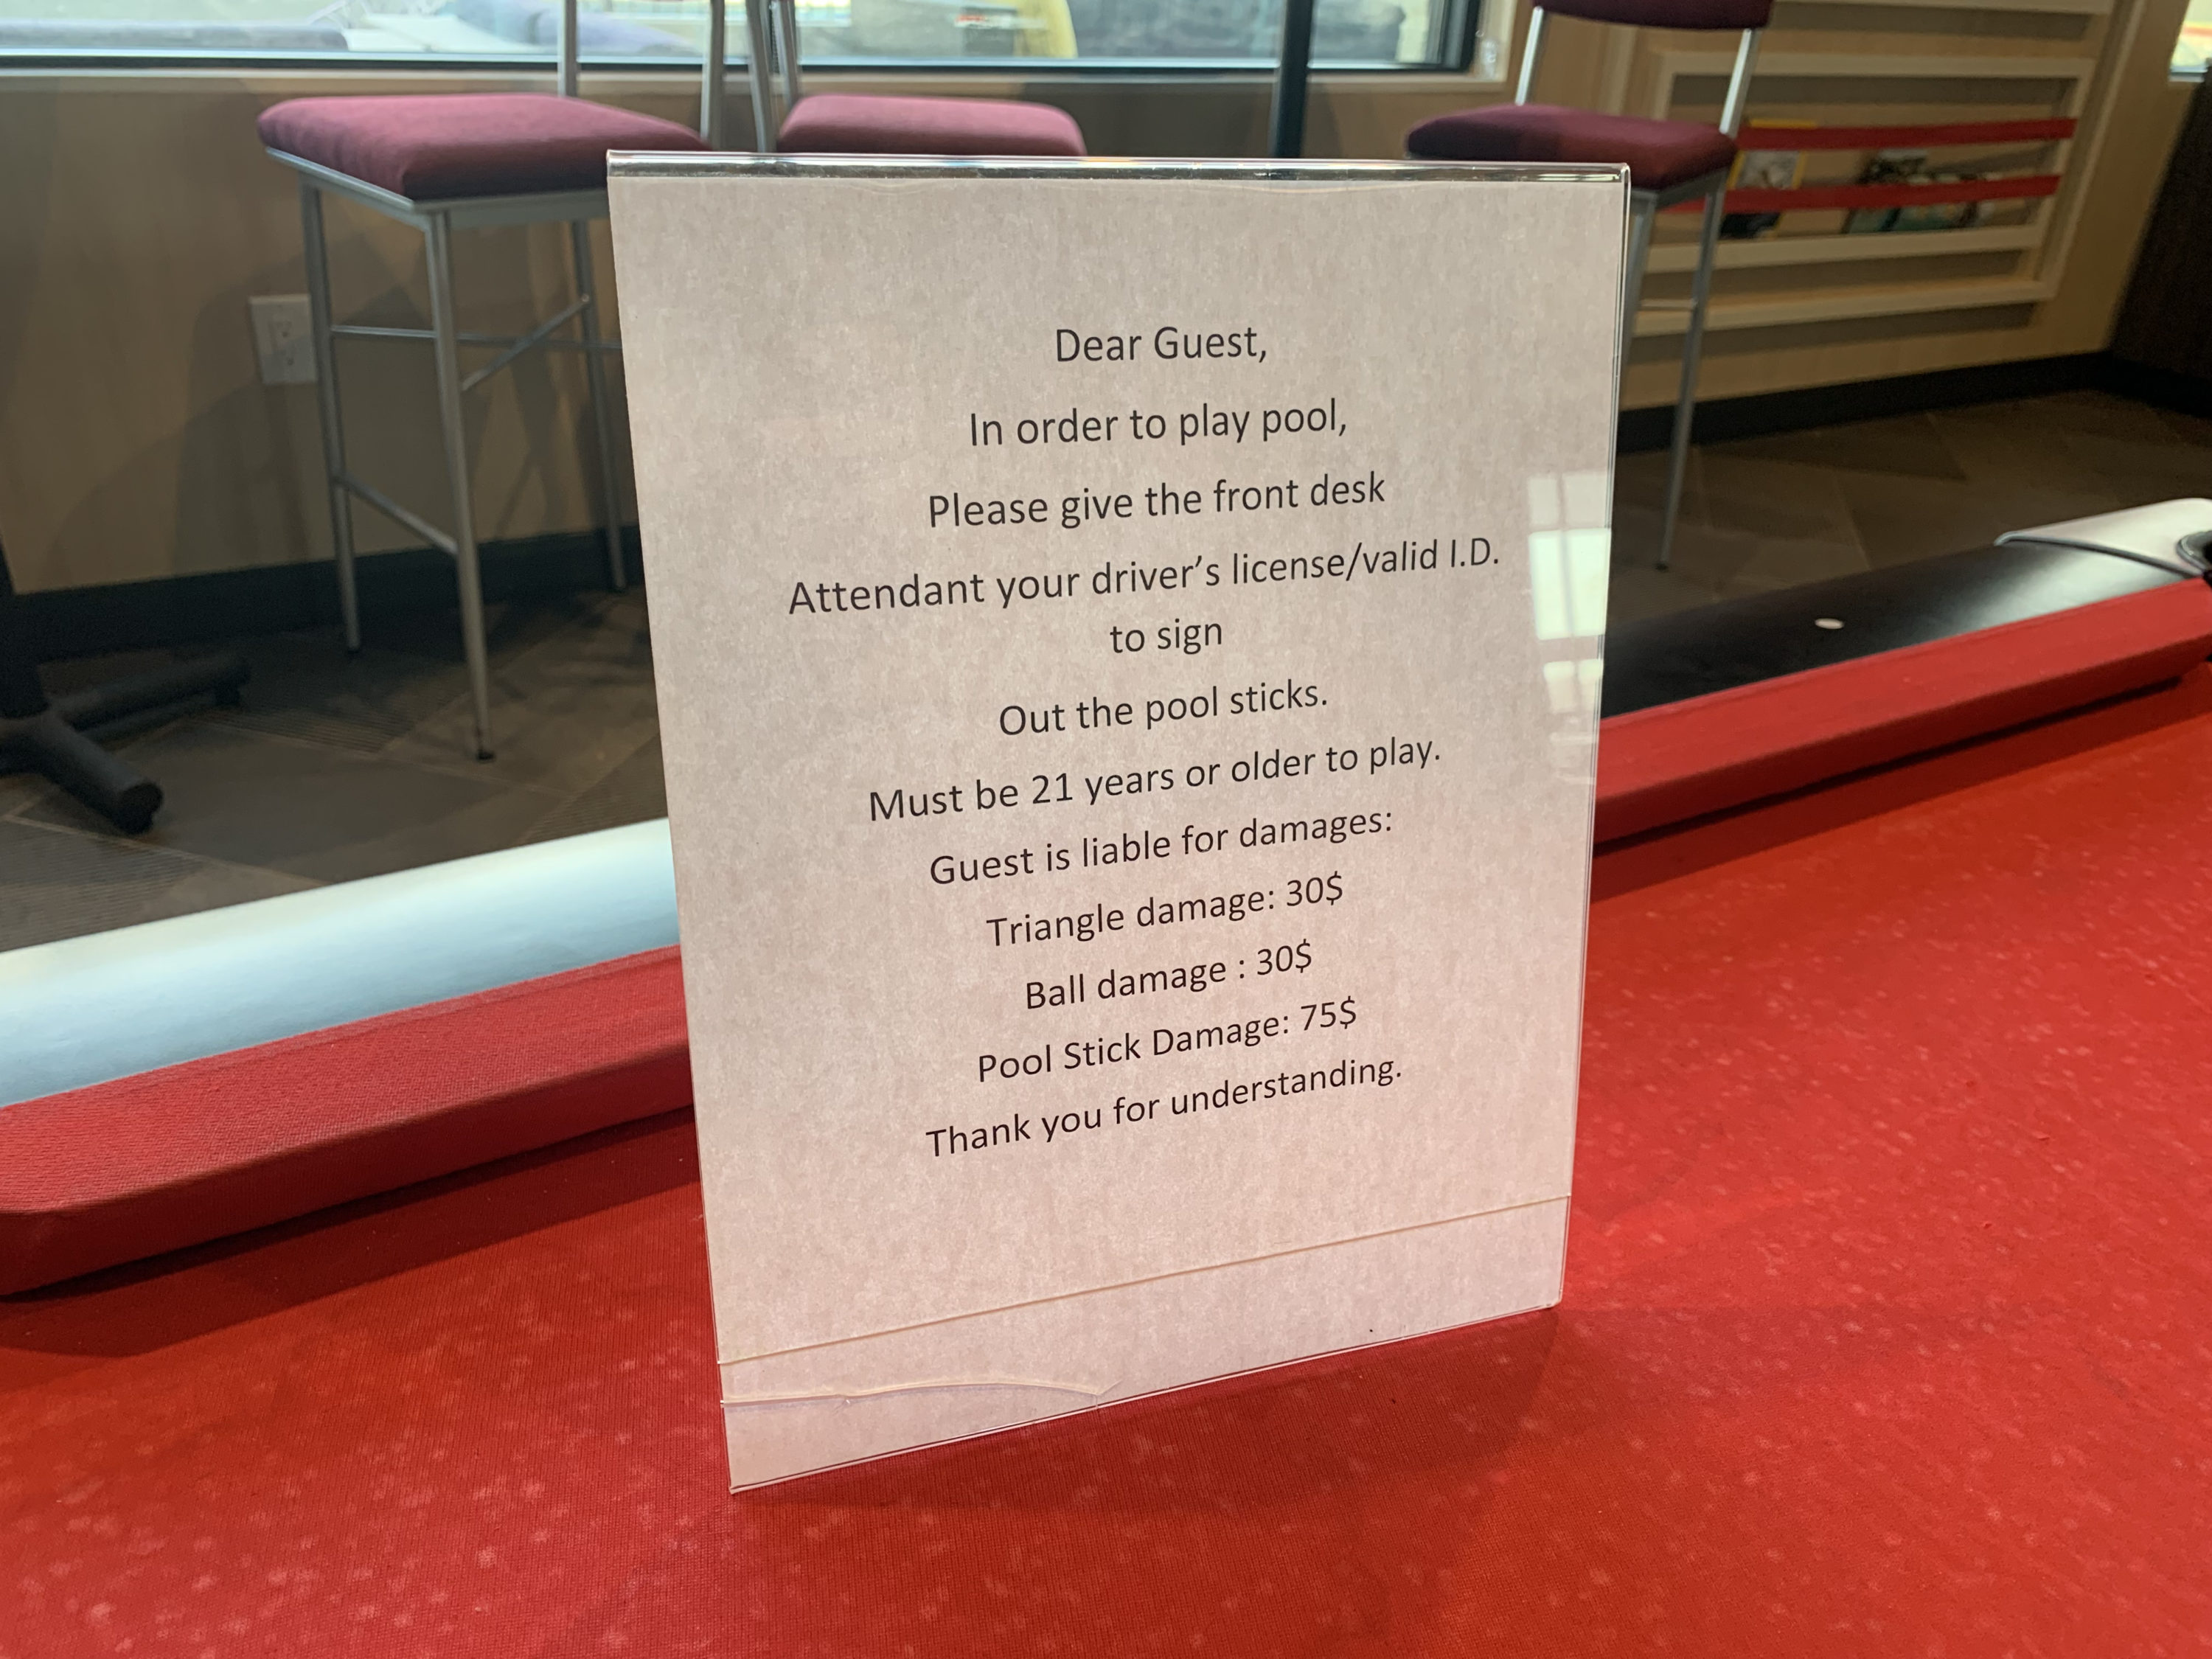 Dear Guest,
In order to play pool,
Please give the front desk
Attendant your driver’s license/valid I.D.
to sign
Out the pool sticks.
Must be 21 years or older to play.
Guest is liable for damages:
Triangle damage: 30$
Ball damage : 30$
Pool Stick Damage: 75$
Thank you for understanding.